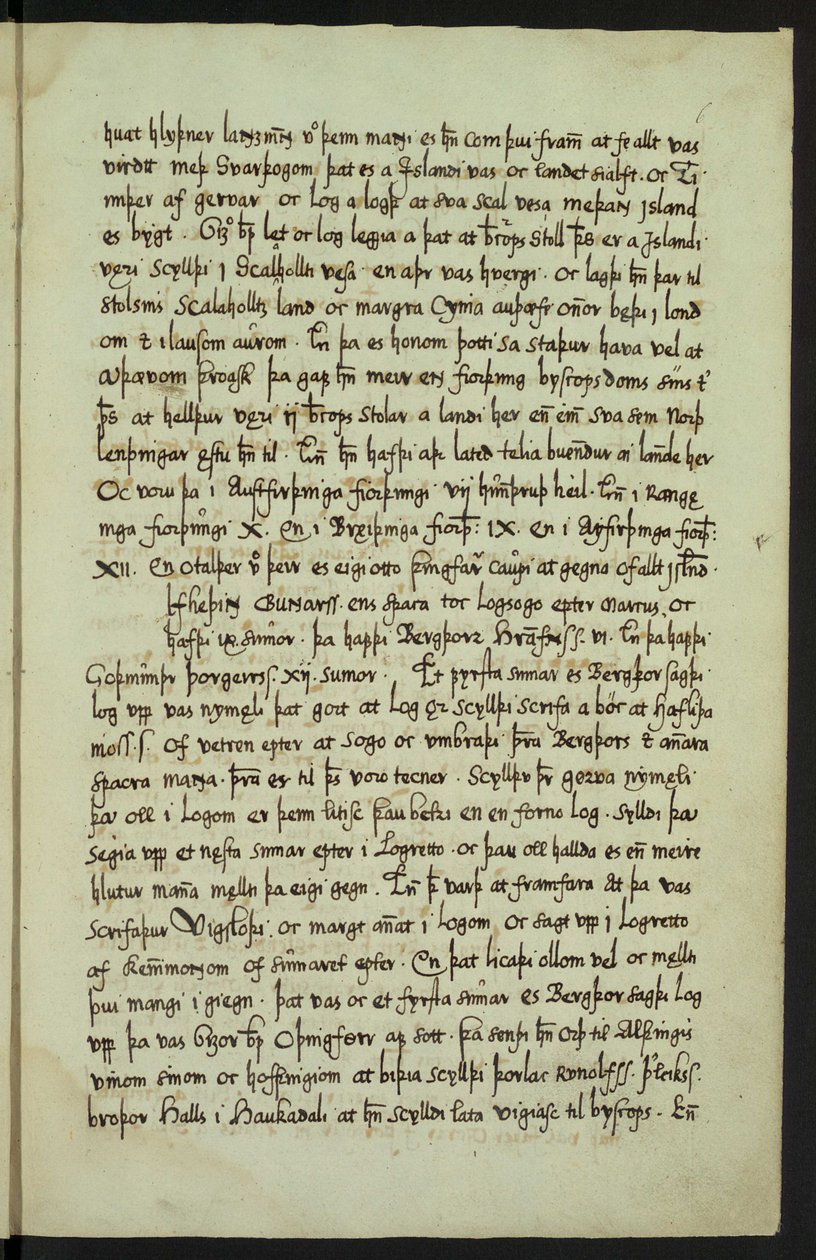 6
huat hlyþner lanꝫmēn vͦ þeim manni es hn̄ com þui fram̄ at fe allt vas
virdtt meþ Svarþogom þat es a Islandi vas oc landet sialft. oc Ti
mþer af gervar oc Log a logþ at sva scal vesa meþan Jsland
es bygt. Gizͦ bp̄ let oc log leggia a þat at bꝛ̄cops Stoll þs̄ er a Islandi
vęri Scyllþi j Scalahollti vesa en aþr vas hvergi. oc lagþi hn̄ þar til
stolsins Scalaholltz land oc margra Cynia auþæfe on̄or bęþi j lond
om ⁊ i lausom aurom. En̄ þa es honom þotti sa staþur hava vel at
auþævom þroask þa gaf hn̄ meir enn fiorþung byscops doms sins t̕
þs̄ at hellþur vęri ij bꝛ̄cops Stolar a landi her en̄ ein̄ sva sem Norþ
lenþingar ęstu hn̄ til. En̄ hn̄ hafþi aþr lated telia buen̄dur ai lan̄de her
Oc voru þa i Austfirþinga fiorþungi vij hun̄þruþ heil. En̄ i Rangę
inga fiorþungi X. en i Bręiþinga fiorþ̄: IX. en i Ayfirþinga fiorþ̄:
XII. en otalþer vͦ þeir es eigi otto þingfarͬ caupi at gegna of allt Jsl̄nd.
Ulfheþinn Gunarss. ens spaca toc Logsogo epter Marcus, oc
hafþi ix sumor. þa hafþi Bergþorr Hrafnss. vi. En þa hafþi
Goþmunþr þorgeirss. xij. sumor. Et fyrsta sumar es Bergþor sagþi
log upp vas nymęli þat gort at Log ǫr scyllþi scrifa a bóc at Hafliþa
moss. s. of vetren epter at sogo oc umbraþi þr̄a Bergþors ⁊ an̄ara
spacra manna. þr̄a es til þs̄ voro tecner. Scyllþu þr̄ gørva nymęli
þau oll i Logom er þeim litisc þau betri en en forno log. Sylldi þau
segia upp et nęsta sumar epter i Logretto. oc þau oll hallda es en̄ meire
hlutur man̄a męlti þa eigi gegn. En̄ þ̄ varþ at framfara At þa vas
scrifaþur Vigsloþi. oc margt an̄at i Logom oc sagt upp j Logretto
af ken̄imonnom of sum̄aret epter. En þat licaþi ollom vel oc męlti
þui mangi i giegn. þat vas oc et fyrsta sumar es Bergþor sagþi Log
upp þa vas Gizor bp̄ Oþingførr af sott. þa senþi hn̄ orþ til Alþingis
vinom sinom oc hofþingiom at biþia scyllþi þorlac Runolfss. þ̕leikss.
broþor Halls i Haukadali at hn̄ scylldi lata vigiasc til byscops. En̄